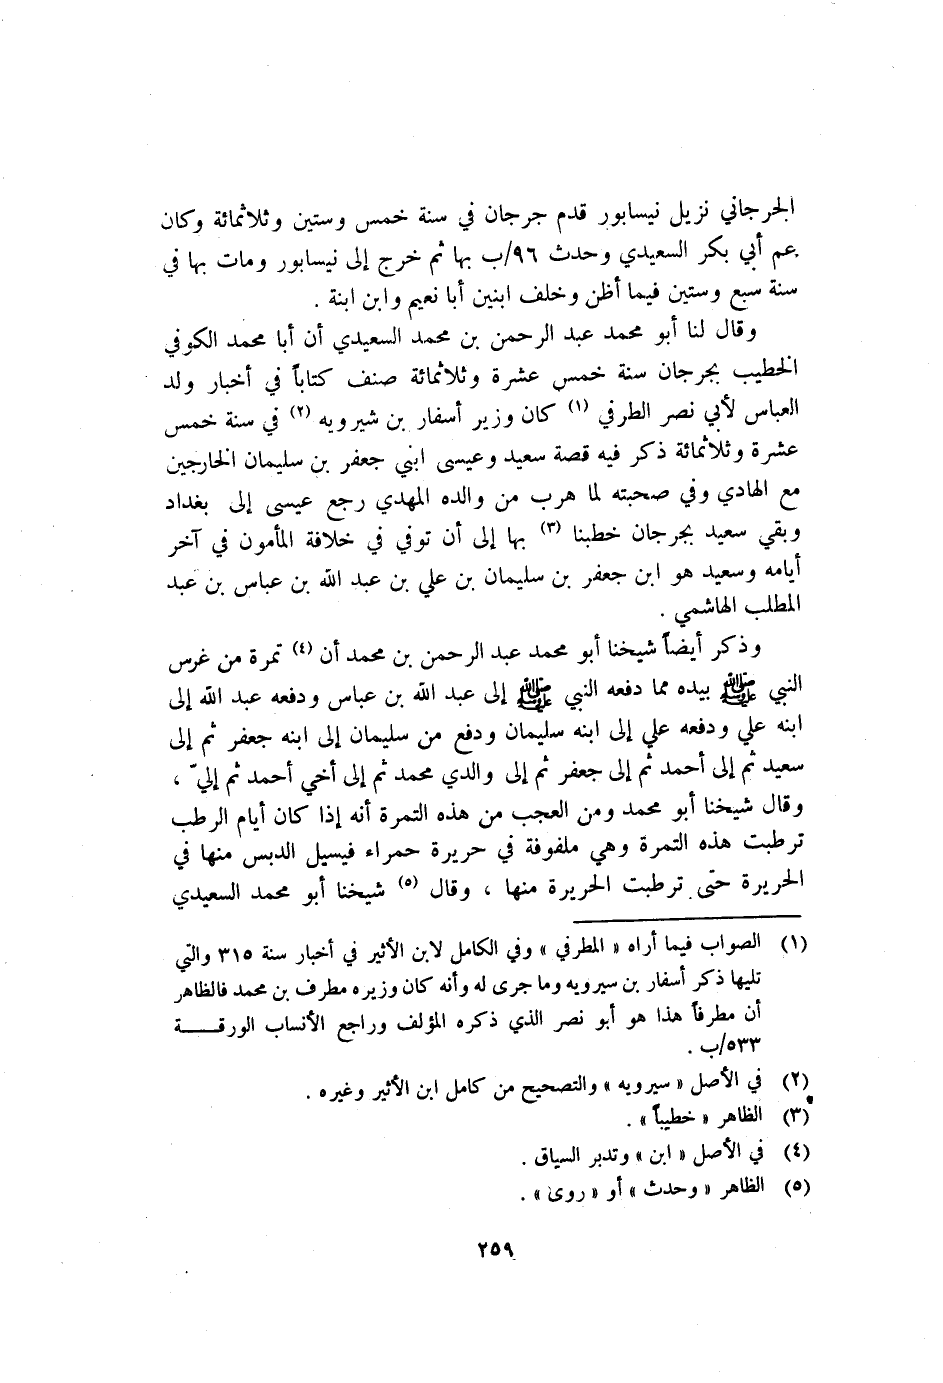 الجرجاني نزيل نيسابور قدم جرجان في سنة خمس وستين وثلاثمائة وكان
عم أبي بكر السعيدي وحدث ٩٦/ب بها ثم خرج إلى نيسابور ومات بها في
سنة سبع وستين فيما أظن وخلف ابنين أبا نعيم وابن ابنة .
وقال لنا أبو محمد عبد الرحمن بن محمد السعيدي أن أبا محمد الكوفي
الخطيب بجرجان سنة خمس عشرة وثلاثمائة صنف كتاباً في أخبار ولد
العباس لأبي نصر الطرفي (١) كان وزير أسفار بن شيرويه (٢) في سنة خمس
عشرة وثلاثمائة ذكر فيه قصة سعيد وعيسى ابني جعفر بن سليمان الخارجين
مع الهادي وفي صحبته لما هرب من والده المهدي رجع عيسى إلى بغداد
وبقي سعيد بجرجان خطبنا (٣) بها إلى أن توفي في خلافة المأمون في آخر
أيامه وسعيد هو ابن جعفر بن سليمان بن علي بن عبد الله بن عباس بن عبد
المطلب الهاشمي .
وذكر أيضاً شيخنا أبو محمد عبد الرحمن بن محمد أن (٤) تمرة من غرس
النبي ﷺ بيده مما دفعه النبي ﷺ إلى عبد الله بن عباس ودفعه عبد الله إلى
ابنه علي ودفعه علي إلى ابنه سليمان ودفع من سليمان إلى ابنه جعفر ثم إلى
سعيد ثم إلى أحمد ثم إلى جعفر ثم إلى والدي محمد ثم إلى أخي أحمد ثم إليّ ،
وقال شيخنا أبو محمد ومن العجب من هذه التمرة أنه إذا كان أيام الرطب
ترطبت هذه التمرة وهي ملفوفة في حريرة حمراء فيسيل الدبس منها في
الحريرة حتى ترطبت الحريرة منها ، وقال (٥) شيخنا أبو محمد السعيدي
(١) الصواب فيما أراه « المطرفي » وفي الكامل لابن الأثير في أخبار سنة ٣١٥ والتي
تليها ذكر أسفار بن سيرويه وما جرى له وأنه كان وزيره مطرف بن محمد فالظاهر
أن مطرفاً هذا هو أبو نصر الذي ذكره المؤلف وراجع الأنساب الورقـــة
٥٣٣/ب .
(٢) في الأصل « سيرويه » والتصحيح من كامل ابن الأثير وغيره .
(٣) الظاهر « خطيباً » .
(٤) في الأصل « ابن » وتدبر السياق .
(٥) الظاهر « وحدث » أو « روى » .
٢٥٩